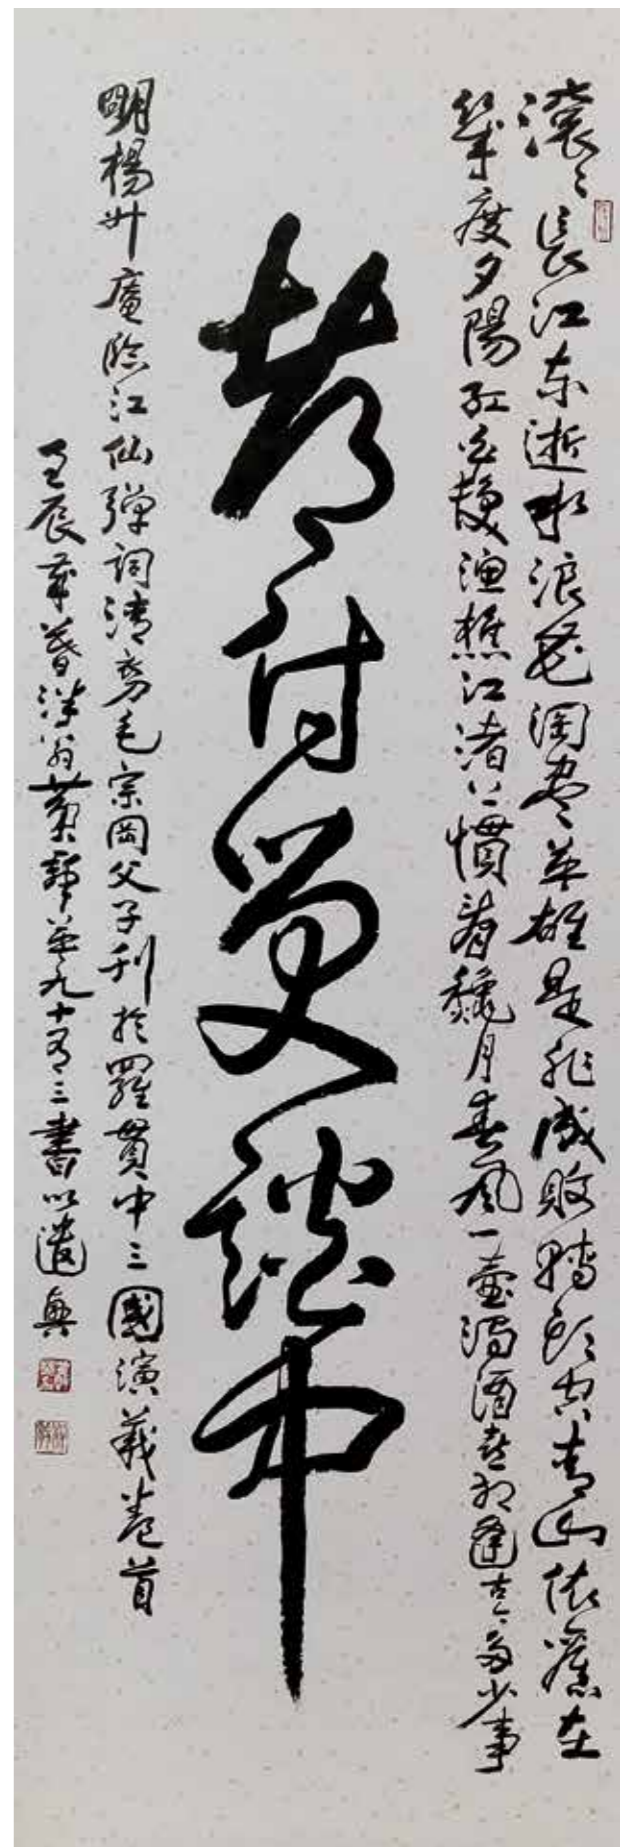 滾々長江東逝水浪花淘盡英雄是非成敗轉頭空青山依舊在
幾度夕陽紅白髮漁樵江渚上慣看秋月春風一壺濁酒喜相逢古今多少事
都付笑談中
明楊升庵臨江仙彈詞清毛宗岡父子刊於羅貫中三國演義卷首
壬辰翁黃年九十有三書以遣興